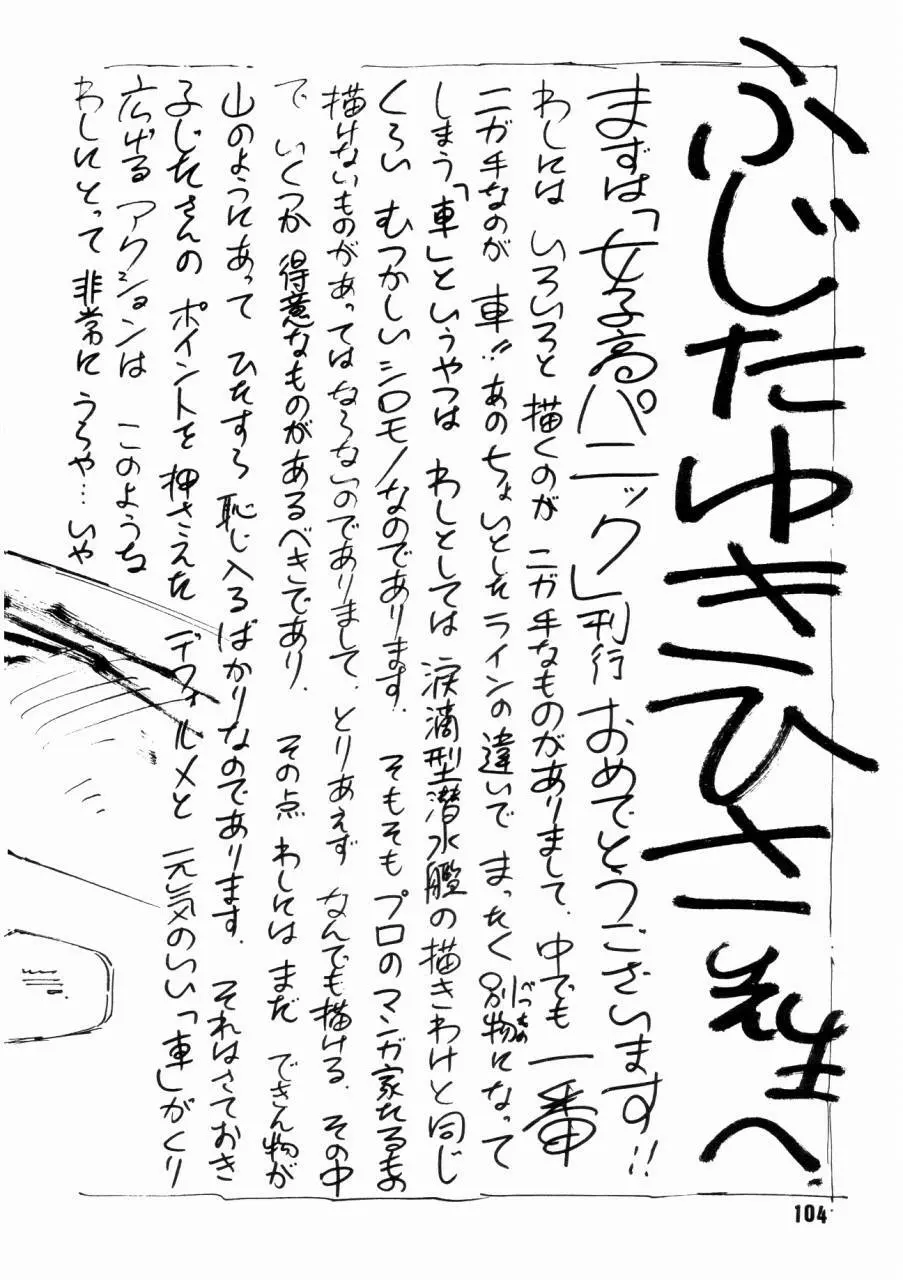 ふじたゆきひさ先生へ
まずは「女子高パニック」刊行おめでとうございます!!
わしには いろいろと 描くのが ニガ手なものがありまして、中でも 一番
ニガ手なのが 車!! あのちょいとしたラインの違いで まったく別物になって
べつもの
しまう「車」というやつは わしとしては 涙滴型潜水艦の描きわけと同じ
くらい むつかしいシロモノなのであります。 そもそも プロのマンガ家たるもの
描けないものがあってはならないのでありまして、とりあえず なんでも描ける、その中
で いくつか 得意なものがあるべきであり、 その点 わしには まだ できん物が
山のようにあって ひたすら 恥じ入るばかりなのであります。 それはさておき
ふじたさんの ポイントを 押さえた デフォルメと 元気のいい「車」がくり
広げる アクションは このような
わしにとって 非常に うらや…いや
104